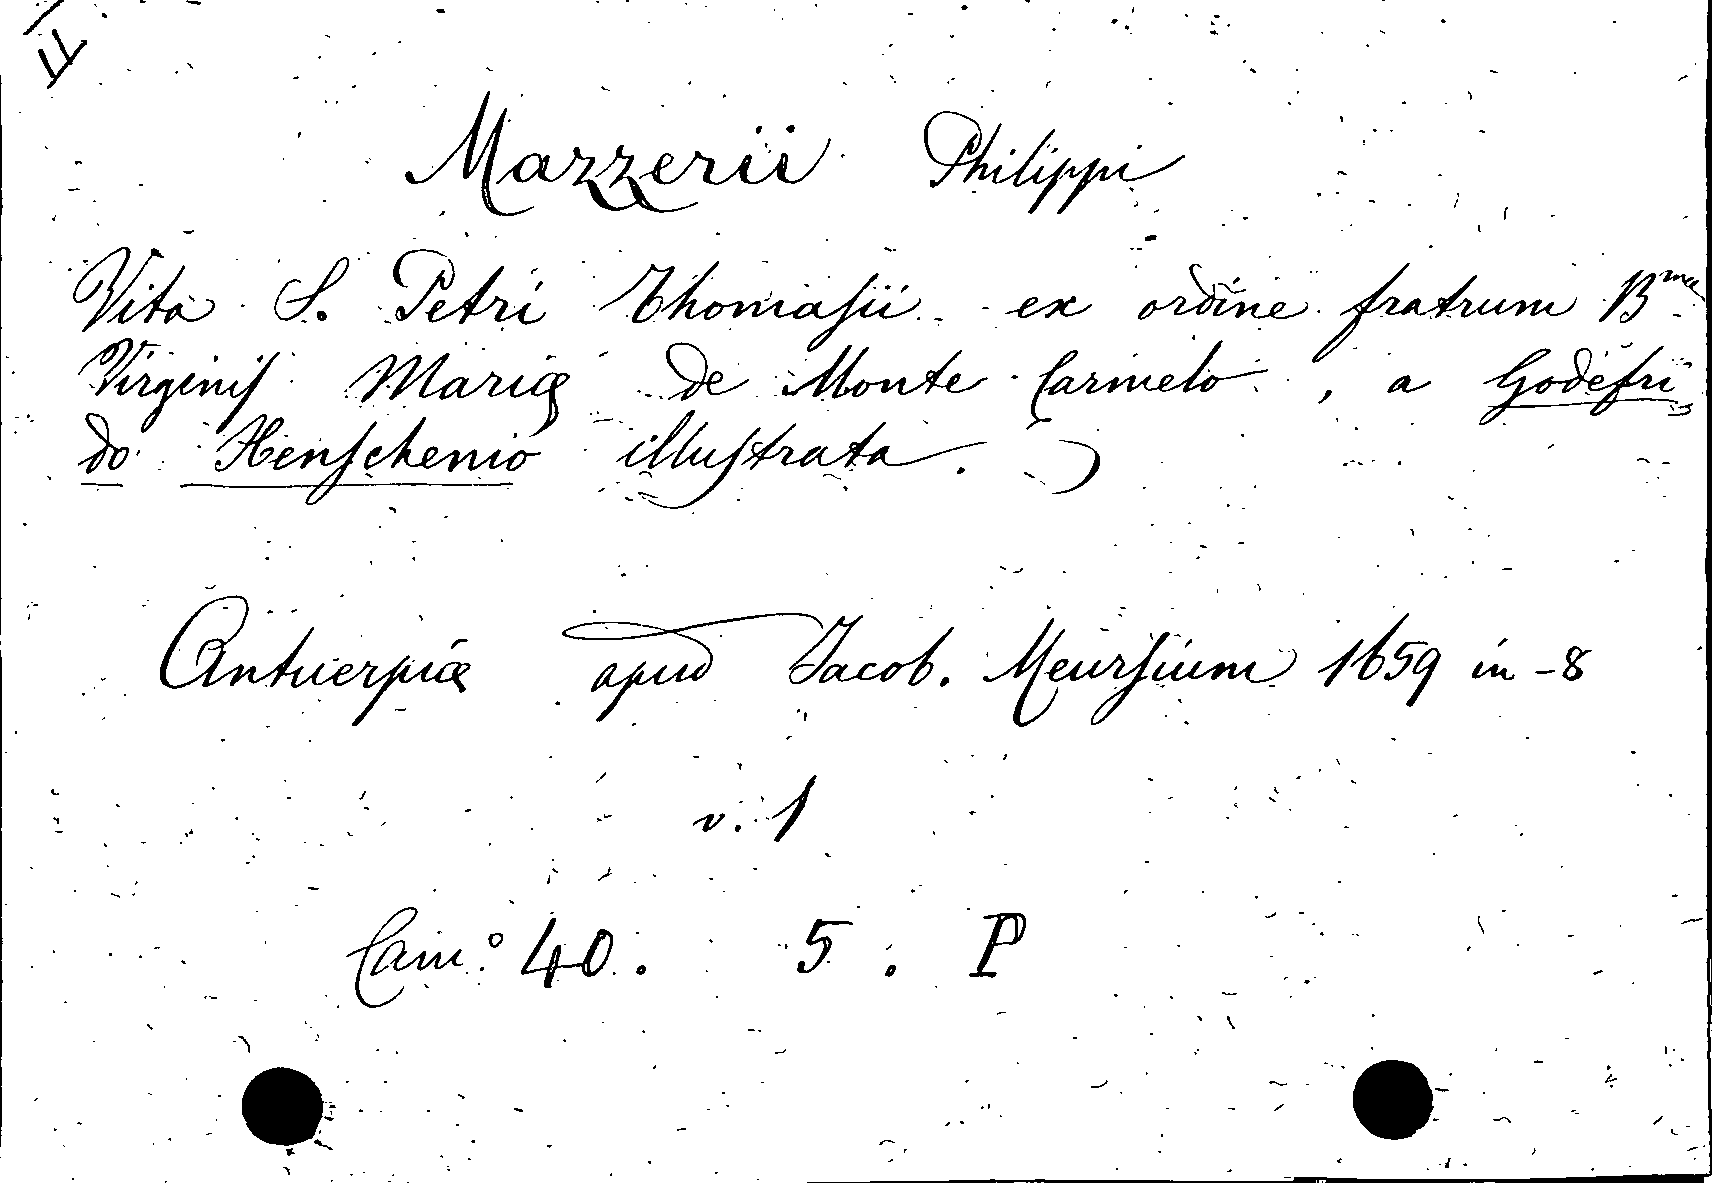 Mazzerii Philippi
Vita S. Petri Thomasii ex ordine fratrum Bmæ
Virginis Mariæ de Monte Carmelo, a Godefri
do Henschenio illustrata.
Antuerpiæ apud Jacob. Meursium 1659 in-8
v. 1
Cam.° 40. 5. P